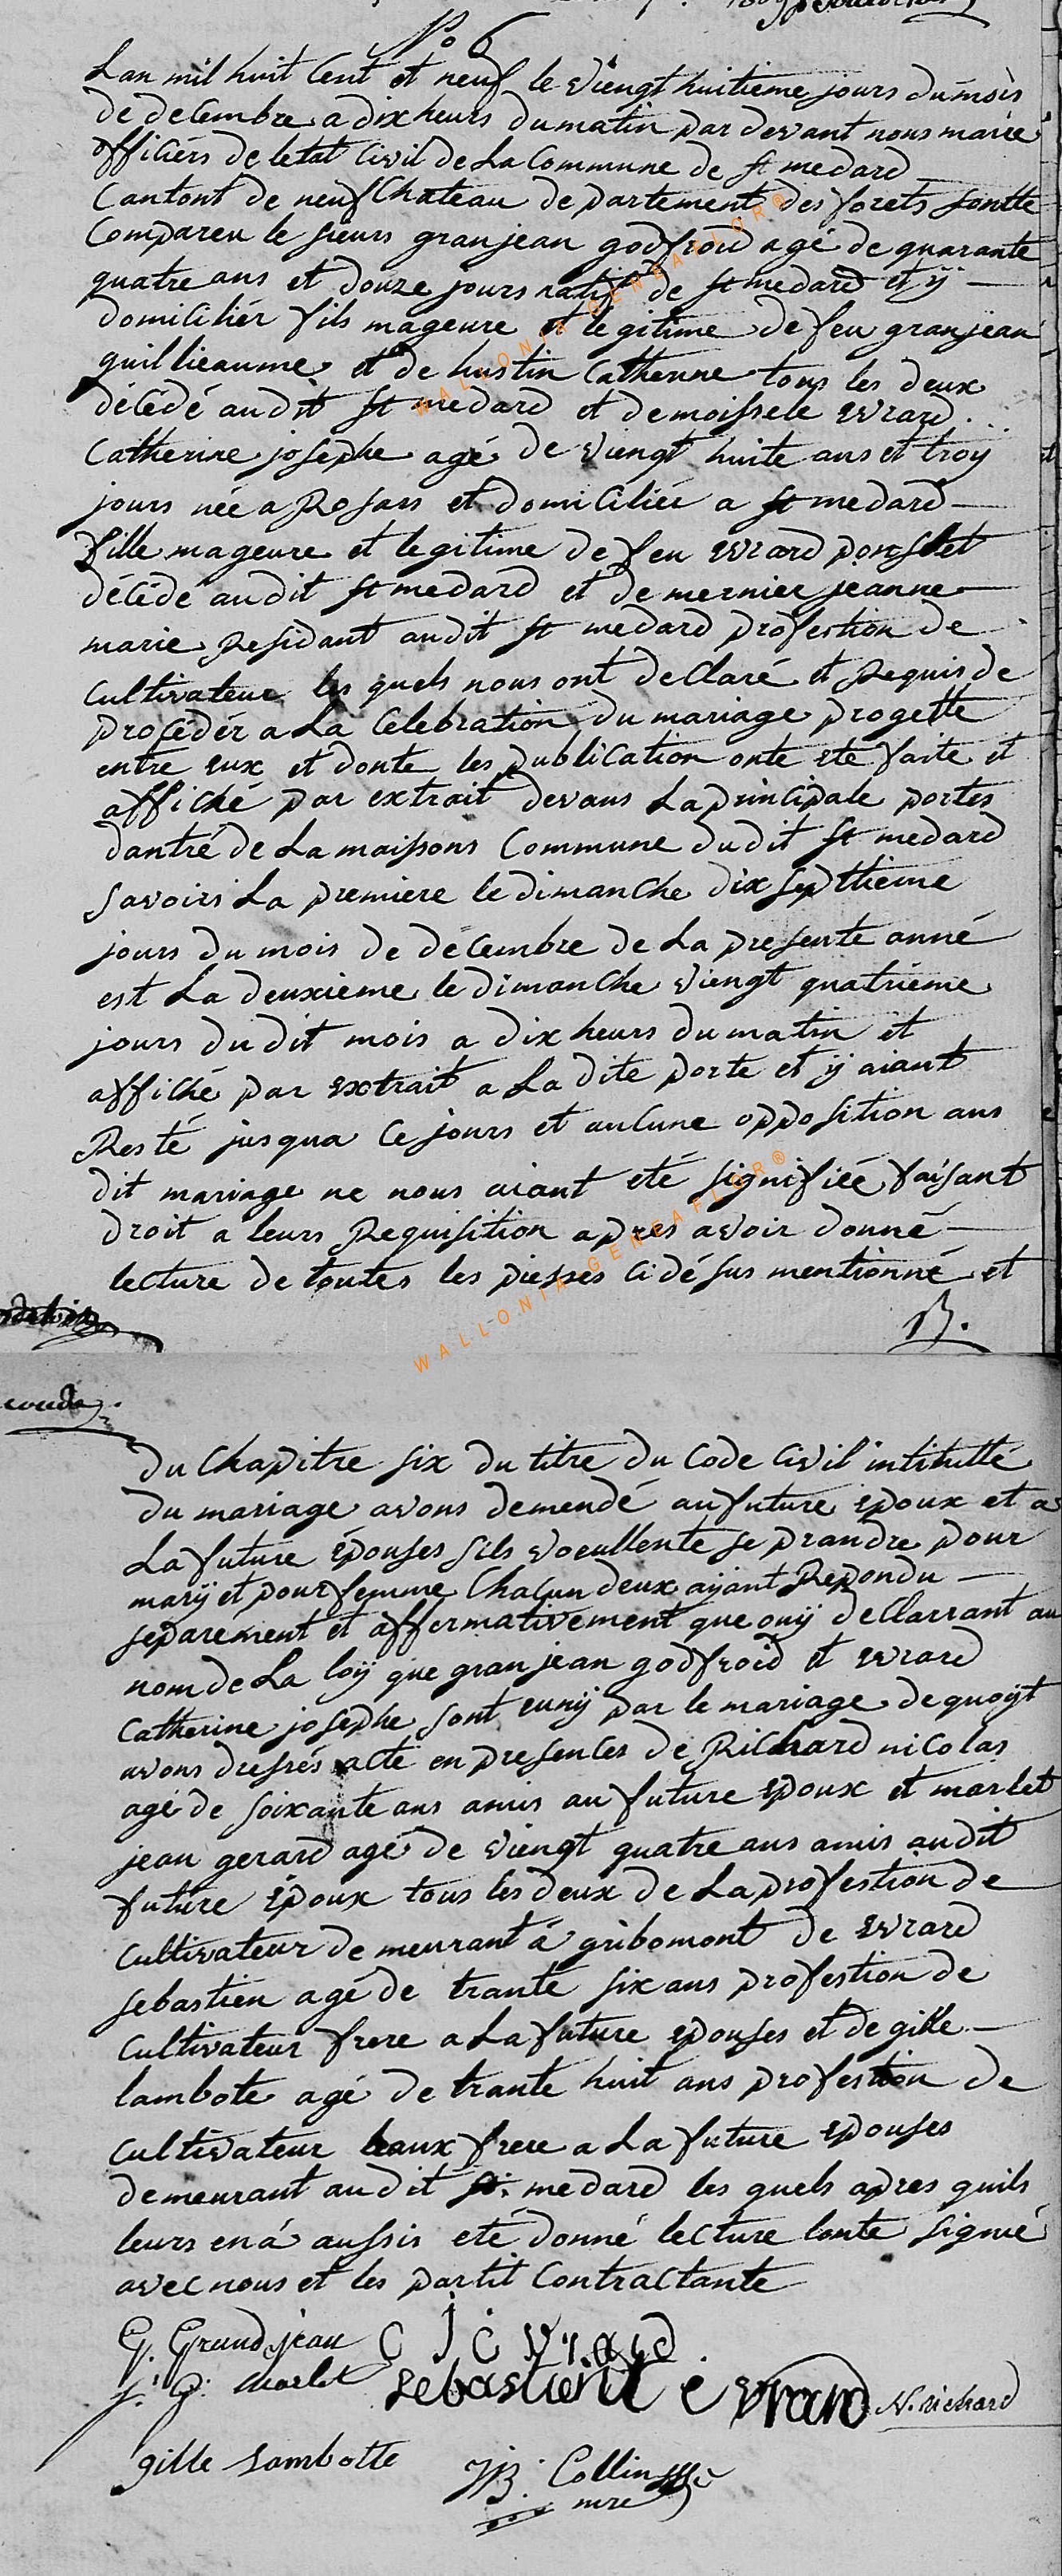 No 6
Lan mil huit Cent et neuf le viengt huitieme jours du mois
de decembre a dix heurs du matin par devant nous maire
officiérs de letat Civil de La Commune de St medard
Cantont de neufchateau departement des forets sontte
Compareu le sieurs granjean godfroid agé de quarante
quatre ans et douze jours natif de St medard et ÿ
domicilier fils mageure et legitime de feu granjean
guillieaume et de hustin Catherine tous les deux
décédé audit St medard et demoissele Evrard
Catherine josephe agé de viengt huite ans et troy
jours née a Rosars et domiciliée a St medard
fille mageure et legitime de feu Evrard ponslet
décédé audit St medard et de mernier jeanne
marie Residant audit St medard profestion de
Cultivateur les quels nous ont declaré et Requis de
procédér a La Celebration du mariage progette
entre eux et donte les publication onte eté faite et
affiché par extrait devans La principale portes
dantré de La maissons Commune dudit St medard
savoirs La premiere le dimanche dix septhieme
jours du mois de decembre de La presente anné
est La deuxieme le dimanche viengt quatrieme
jours dudit mois a dix heurs du matin et
affiché par Extrait a La dite porte et ÿ aiant
Resté jusqua Ce jours et aucune opposition aus
dit mariage ne nous aiant eté signifiée faisant
droit a leurs Requisition apres avoir donné
lecture de toutes les piesses ci désus mentionné et
B.
du Chapitre six du titre du Code Civil intitutté
du mariage avons demendé au future Epoux et a
La future épouses sils voeullente se prandre pour
marÿ et pour femme Chacun deux aÿant Repondu
separément et affermativement que ouÿ declarrant au
nom de La loÿ que granjean godfroid et Evrard
Catherine josephe sont eunÿ par le mariage de quoÿt
avons dressés acte en presences de Richard nicolas
agé de soixante ans amis au future Epoux et marlet
jean gerard agé de viengt quatre ans amis audit
future époux tous les deux de La profestion de
Cultivateur demeurant á gribomont de Evrard
sebastien agé de trante six ans profestion de
Cultivateur frere a La future epouses et de gille
lambote agé de trante huit ans profestion de
Cultivateur beaux frere a La future Epouses
demeurant audit St. medard les quels apres quils
leurs en á aussis eté donné lecture lonte signié
avec nous et les partit Contractante
G. Grandjean C J E Vrard
J. G. marlet sebastient e Vrard N. richard
gille Lambotte JB. Collin
mre
WALLONIA-GENEAFLOR®
WALLONIA-GENEAFLOR®